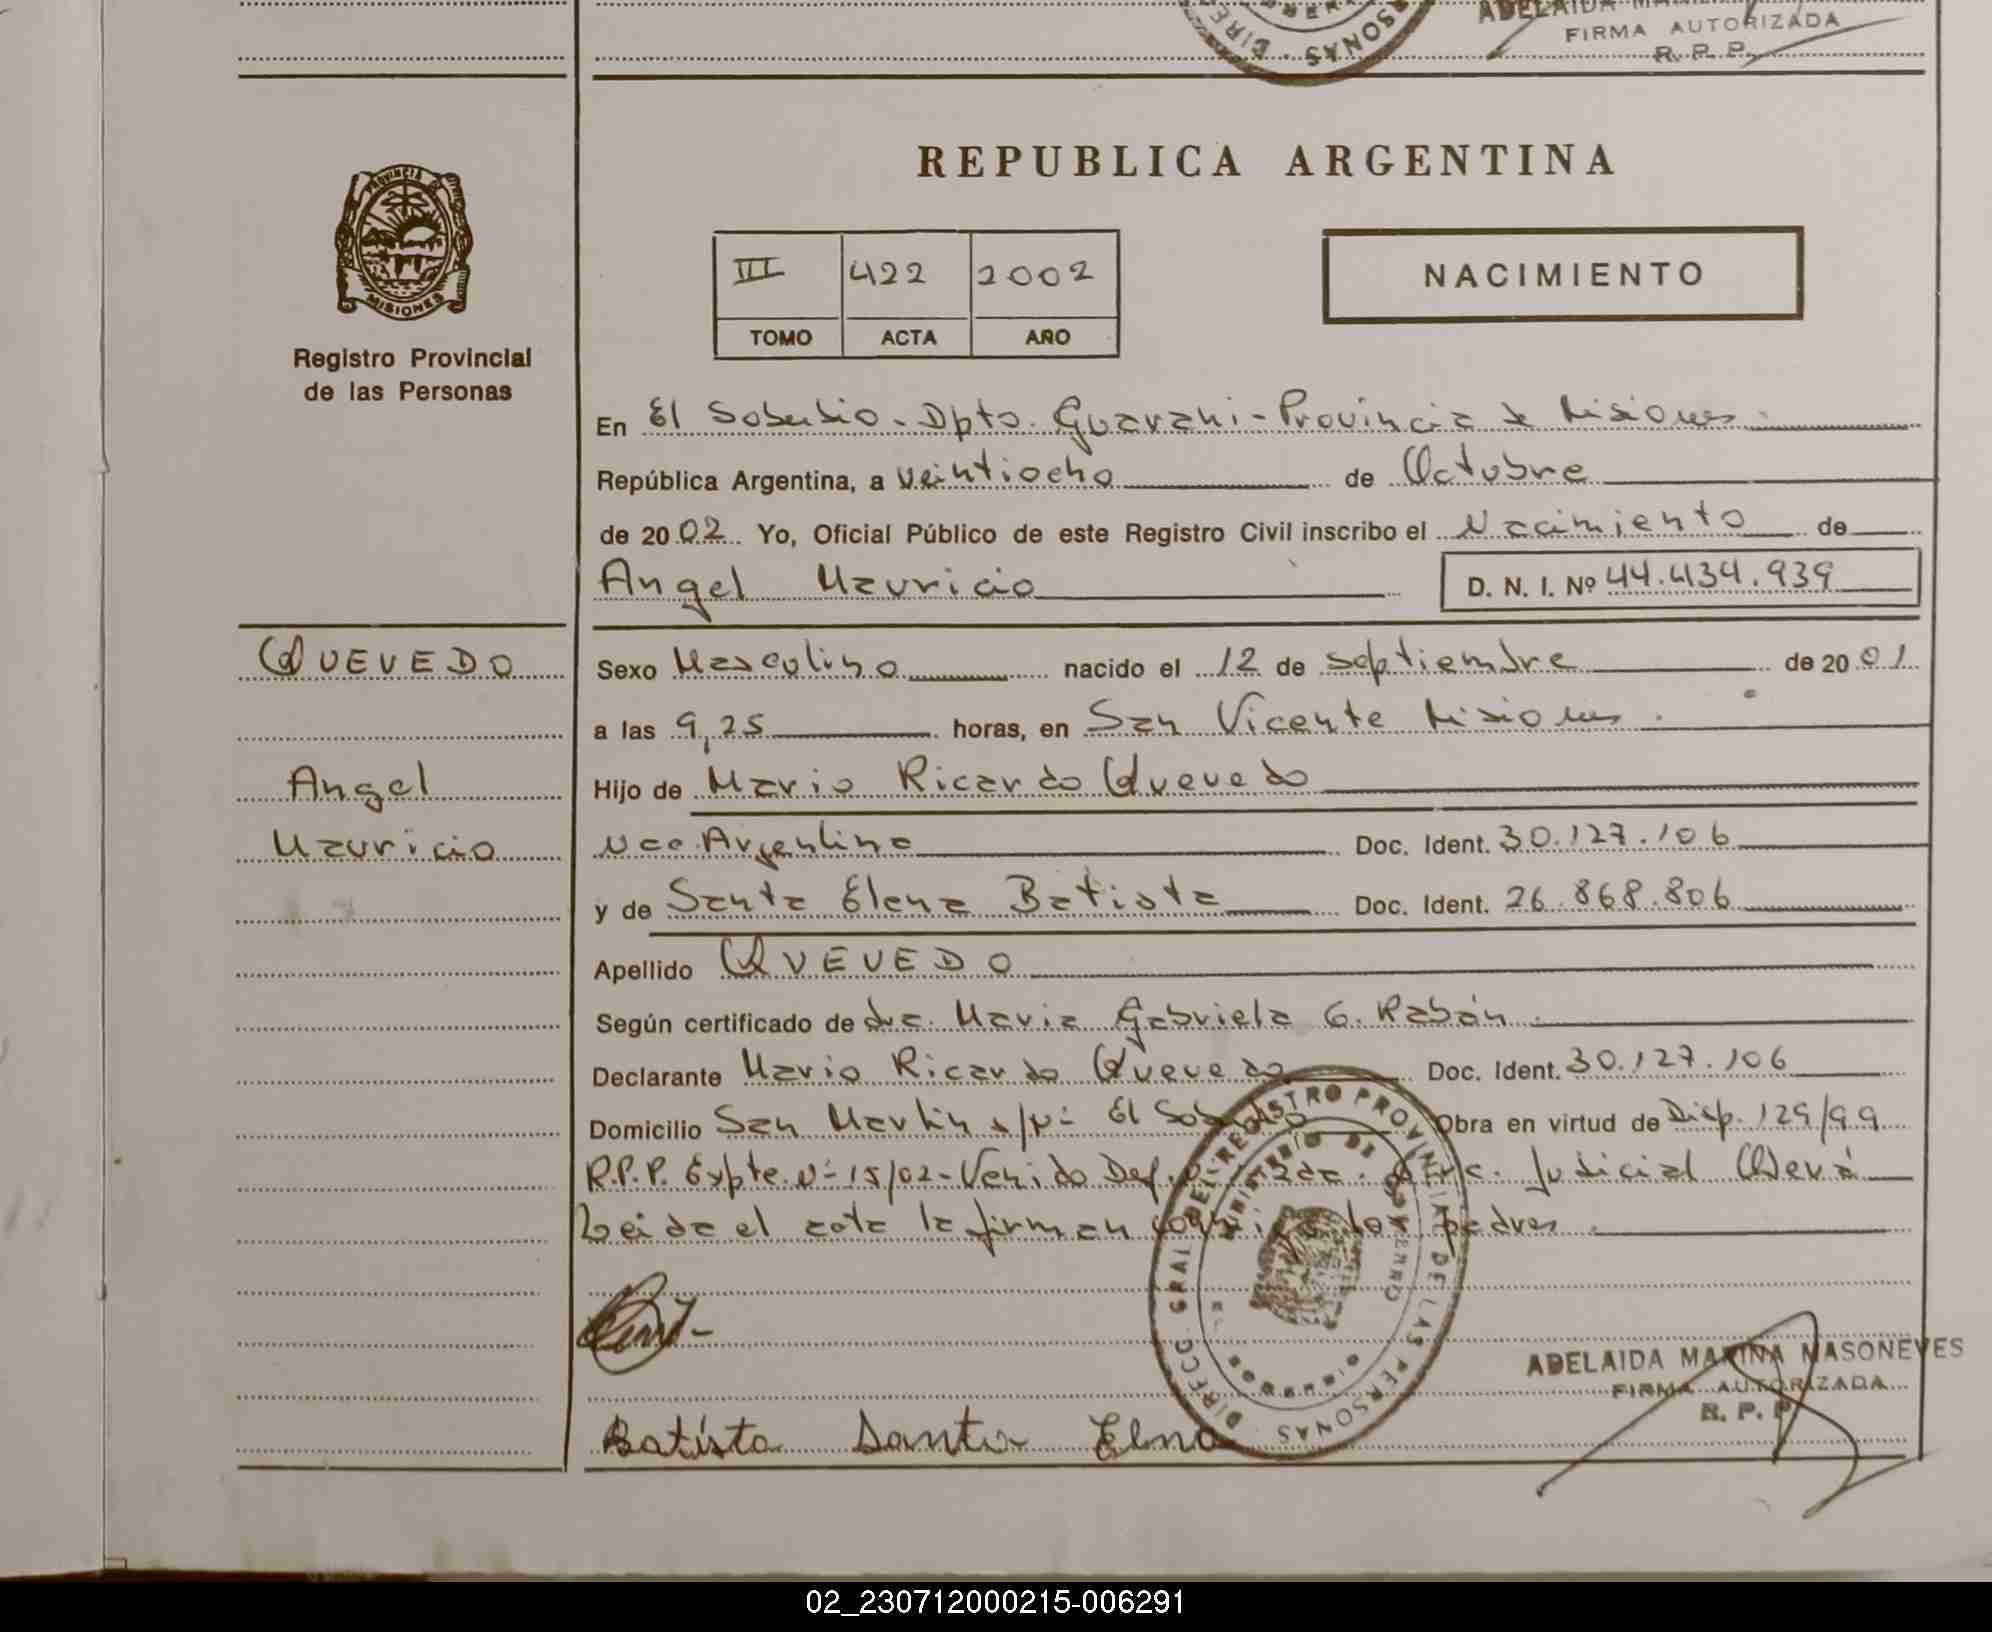 ADELAIDA
FIRMA AUTORIZADA
R. P. P.
PROVINCIA DE
MISIONES
Registro Provincial
de las Personas
REPUBLICA ARGENTINA
III 422 2002
TOMO ACTA AÑO
NACIMIENTO
En El Soberbio - Dpto. Guarani - Provincia de Misiones.
República Argentina, a veintiocho de Octubre
de 2002 Yo, Oficial Público de este Registro Civil inscribo el Nacimiento de
Angel Mauricio D. N. I. Nº 44.434.939
QUEVEDO
Angel
Mauricio
Sexo Masculino nacido el 12 de septiembre de 2001
a las 9,25 horas, en San Vicente Misiones.
Hijo de Mario Ricardo Quevedo
Nac. Argentino Doc. Ident. 30.127.106
y de Santa Elena Batista Doc. Ident. 26.868.806
Apellido QUEVEDO
Según certificado de dra. Maria Gabriela G. Rabán.
Declarante Mario Ricardo Quevedo Doc. Ident. 30.127.106
Domicilio San Martin s/Nº El Sob Obra en virtud de Disp. 129/99
R.P.P. Expte. Nº 15/02 - Venido Def. Judicial Oberá
Leida el acta la firman los padres.
DIRECC. GRAL. DEL REGISTRO PROVINCIAL DE LAS PERSONAS
MINISTERIO DE GOBIERNO
MISIONES
ADELAIDA MARINA MASONEVES
FIRMA AUTORIZADA
R. P. P.
Batista Santa Elna
02_230712000215-006291